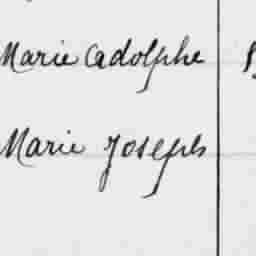 Marie Adolphe
Marie Joseph